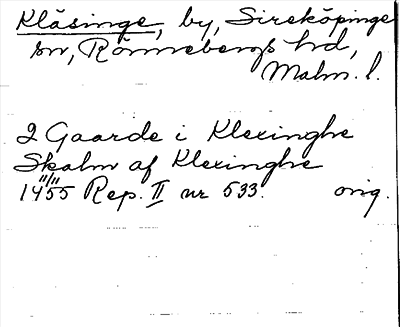 Kläsinge, by, Sireköpinge
sn, Rönnebergs hd,
Malm. l.
2 Gaarde i Klexinghe
Skalm af Klexinghe
11/11
1455 Rep. II nr 533. orig.